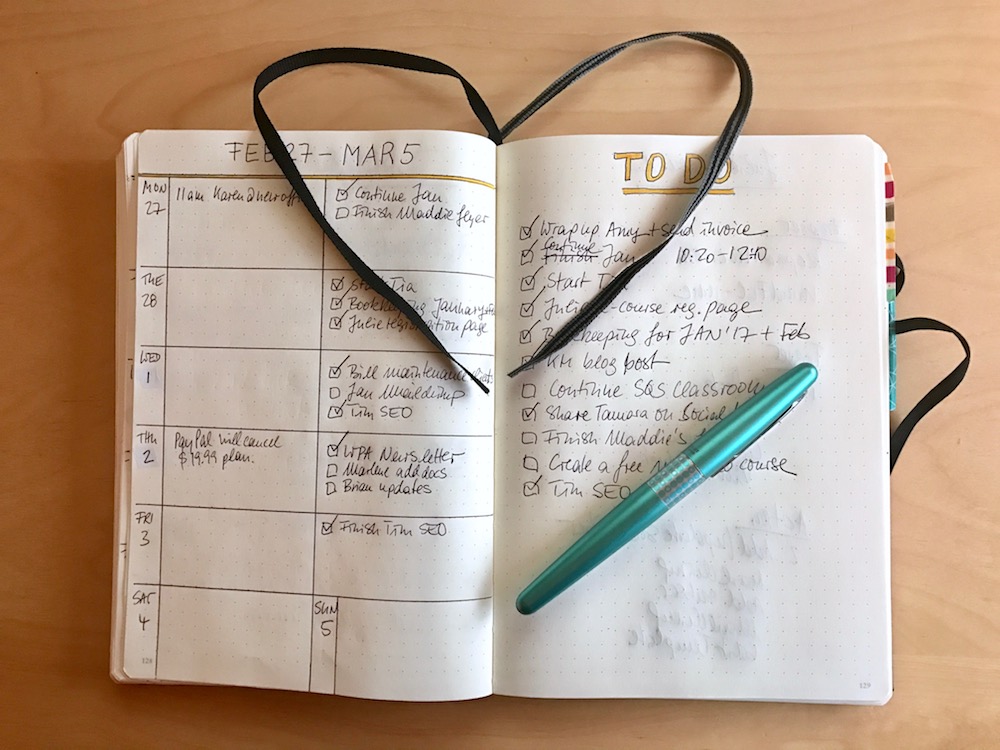 FEB 27 - MAR 5
MON
27
11am Karen @
Continue Jan
Finish Maddie flyer
TUE
28
Start Tia
Bookkeeping January
Julie registration page
WED
1
Bill maintenance
Jan Maildump
Tim SEO
THU
2
PayPal will cancel
$19.99 plan.
WPA Newsletter
Marlene add docs
Brian updates
FRI
3
Finish Tim SEO
SAT
4
SUN
5
128
TO DO
Wrap up Amy + send invoice
Continue
Finish Jan 10:20-12:10
Start Tia
Julie e-course reg. page
Bookkeeping for JAN '17 + Feb
KM blog post
Continue SQS Classroom
Share Tamara on Social
Finish Maddie's
Create a free course
Tim SEO
129